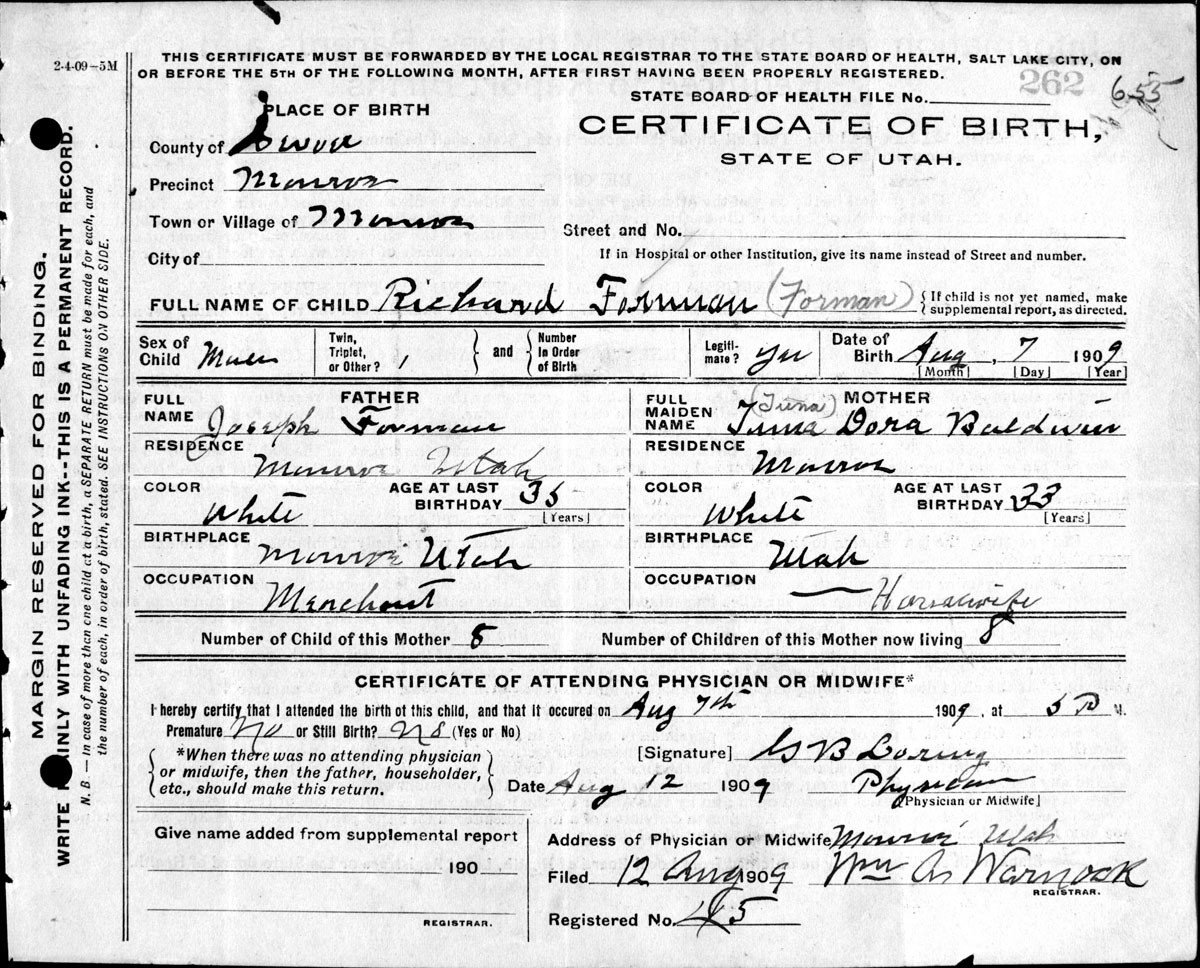 2-4-09-5M
THIS CERTIFICATE MUST BE FORWARDED BY THE LOCAL REGISTRAR TO THE STATE BOARD OF HEALTH, SALT LAKE CITY, ON
OR BEFORE THE 5TH OF THE FOLLOWING MONTH, AFTER FIRST HAVING BEEN PROPERLY REGISTERED.
262
655
STATE BOARD OF HEALTH FILE No.
PLACE OF BIRTH
CERTIFICATE OF BIRTH,
STATE OF UTAH.
County of Sevier
Precinct Monroe
Town or Village of Monroe
Street and No.
City of
If in Hospital or other Institution, give its name instead of Street and number.
FULL NAME OF CHILD Richard Forman (Forman) { If child is not yet named, make supplemental report, as directed.
Sex of Child Male Twin, Triplet, or Other? 1 } and { Number in Order of Birth Legiti-mate? yes Date of Birth Aug, 7 1909
[Month] [Day] [Year]
FULL NAME FATHER Joseph Forman
FULL MAIDEN NAME MOTHER (Tiena) Dora Baldwin
RESIDENCE Monroe Utah
RESIDENCE Monroe
COLOR White AGE AT LAST BIRTHDAY 35 [Years]
COLOR White AGE AT LAST BIRTHDAY 33 [Years]
BIRTHPLACE Monroe Utah
BIRTHPLACE Utah
OCCUPATION Merchant
OCCUPATION — Housewife
Number of Child of this Mother 8 Number of Children of this Mother now living 8
CERTIFICATE OF ATTENDING PHYSICIAN OR MIDWIFE*
I hereby certify that I attended the birth of this child, and that it occured on Aug 7th 1909, at 5 P M.
Premature No or Still Birth? No (Yes or No)
*When there was no attending physician
or midwife, then the father, householder,
etc., should make this return.
[Signature] G B Loring
Date Aug 12 1909 Physician
[Physician or Midwife]
Give name added from supplemental report
190
REGISTRAR.
Address of Physician or Midwife Monroe Utah
Filed 12 Aug 1909 Wm A. Warnock
REGISTRAR.
Registered No. 45
MARGIN RESERVED FOR BINDING.
WRITE PLAINLY WITH UNFADING INK--THIS IS A PERMANENT RECORD.
N. B.—In case of more than one child at a birth, a SEPARATE RETURN must be made for each, and
the number of each, in order of birth, stated. SEE INSTRUCTIONS ON OTHER SIDE.